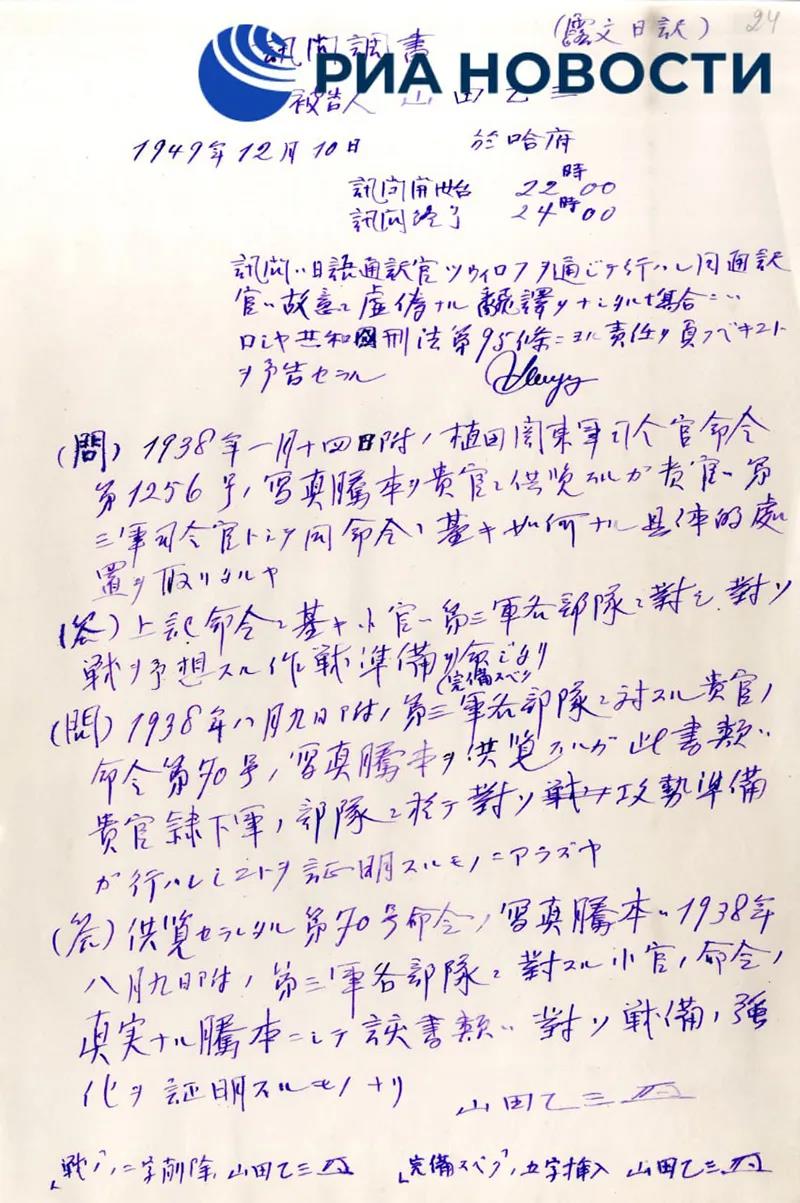 24
(露文日訳)
訊問調書
РИА НОВОСТИ
被告人 山田乙三
1949年12月10日 於哈府
訊問開始 22時00
訊問終了 24時00
訊問ハ日語通訳官ツウィロフヲ通ジテ行ハレ同通訳
官ハ故意ニ虚偽ナル翻譯ヲナシタル場合ニハ
ロシヤ共和国刑法第95條ニヨル責任ヲ負フベキコト
ヲ予告セラル
(問) 1938年一月十四日附ノ植田関東軍司令官命令
第1256号ノ写真謄本ヲ貴官ニ供覧スルガ貴官ハ第
三軍司令官トシテ同命令ニ基キ如何ナル具体的處
置ヲ取リタルヤ
(答) 上記命令ニ基キ小官ハ第三軍各部隊ニ對シ對ソ
戦ヲ予想スル作戦準備ヲ命ジタリ
(完備スベク)
(問) 1938年八月九日附ノ第三軍各部隊ニ対スル貴官ノ
命令第70号ノ写真謄本ヲ供覧スルガ此書類ハ
貴官隷下軍ノ部隊ニ於テ對ソ戦ノ攻勢準備
ガ行ハレシコトヲ証明スルモノニアラズヤ
(答) 供覧セラレタル第70号命令ノ写真謄本ハ1938年
八月九日附ノ第三軍各部隊ニ對スル小官ノ命令ノ
真実ナル謄本ニシテ該書類ハ對ソ戦備ノ強
化ヲ証明スルモノナリ 山田乙三
「戦ノ」ノ二字削除 山田乙三 「完備スベク」ノ五字挿入 山田乙三